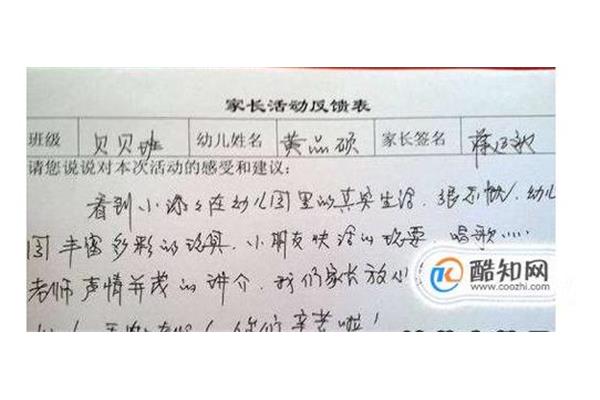 家长活动反馈表
班级 贝贝班 幼儿姓名 黄品硕 家长签名
请您说说对本次活动的感受和建议:
看到小孩子在幼儿园里的真实生活,很感慨!幼儿
园丰富多彩的玩具,小朋友快活的玩耍,唱歌……
老师声情并茂的讲介,我们家长放心
你们辛苦啦!
酷知网
www.coozhi.com